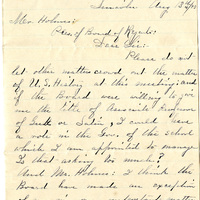 Lincoln Aug 13/90
Mr Holmes:
Pres. of Board of Regents:
Dear Sir:
Please do not
let other matters crowd out the matter
of U.S. History at this meeting; and
if the Board were willing to give
me the title of Associate Professor
of Greek or Latin, I could have
a vote in the Gov. of the school
which I am appointed to manage
Is that asking too much?
And Mr. Holmes: I think the
Board have made an exception